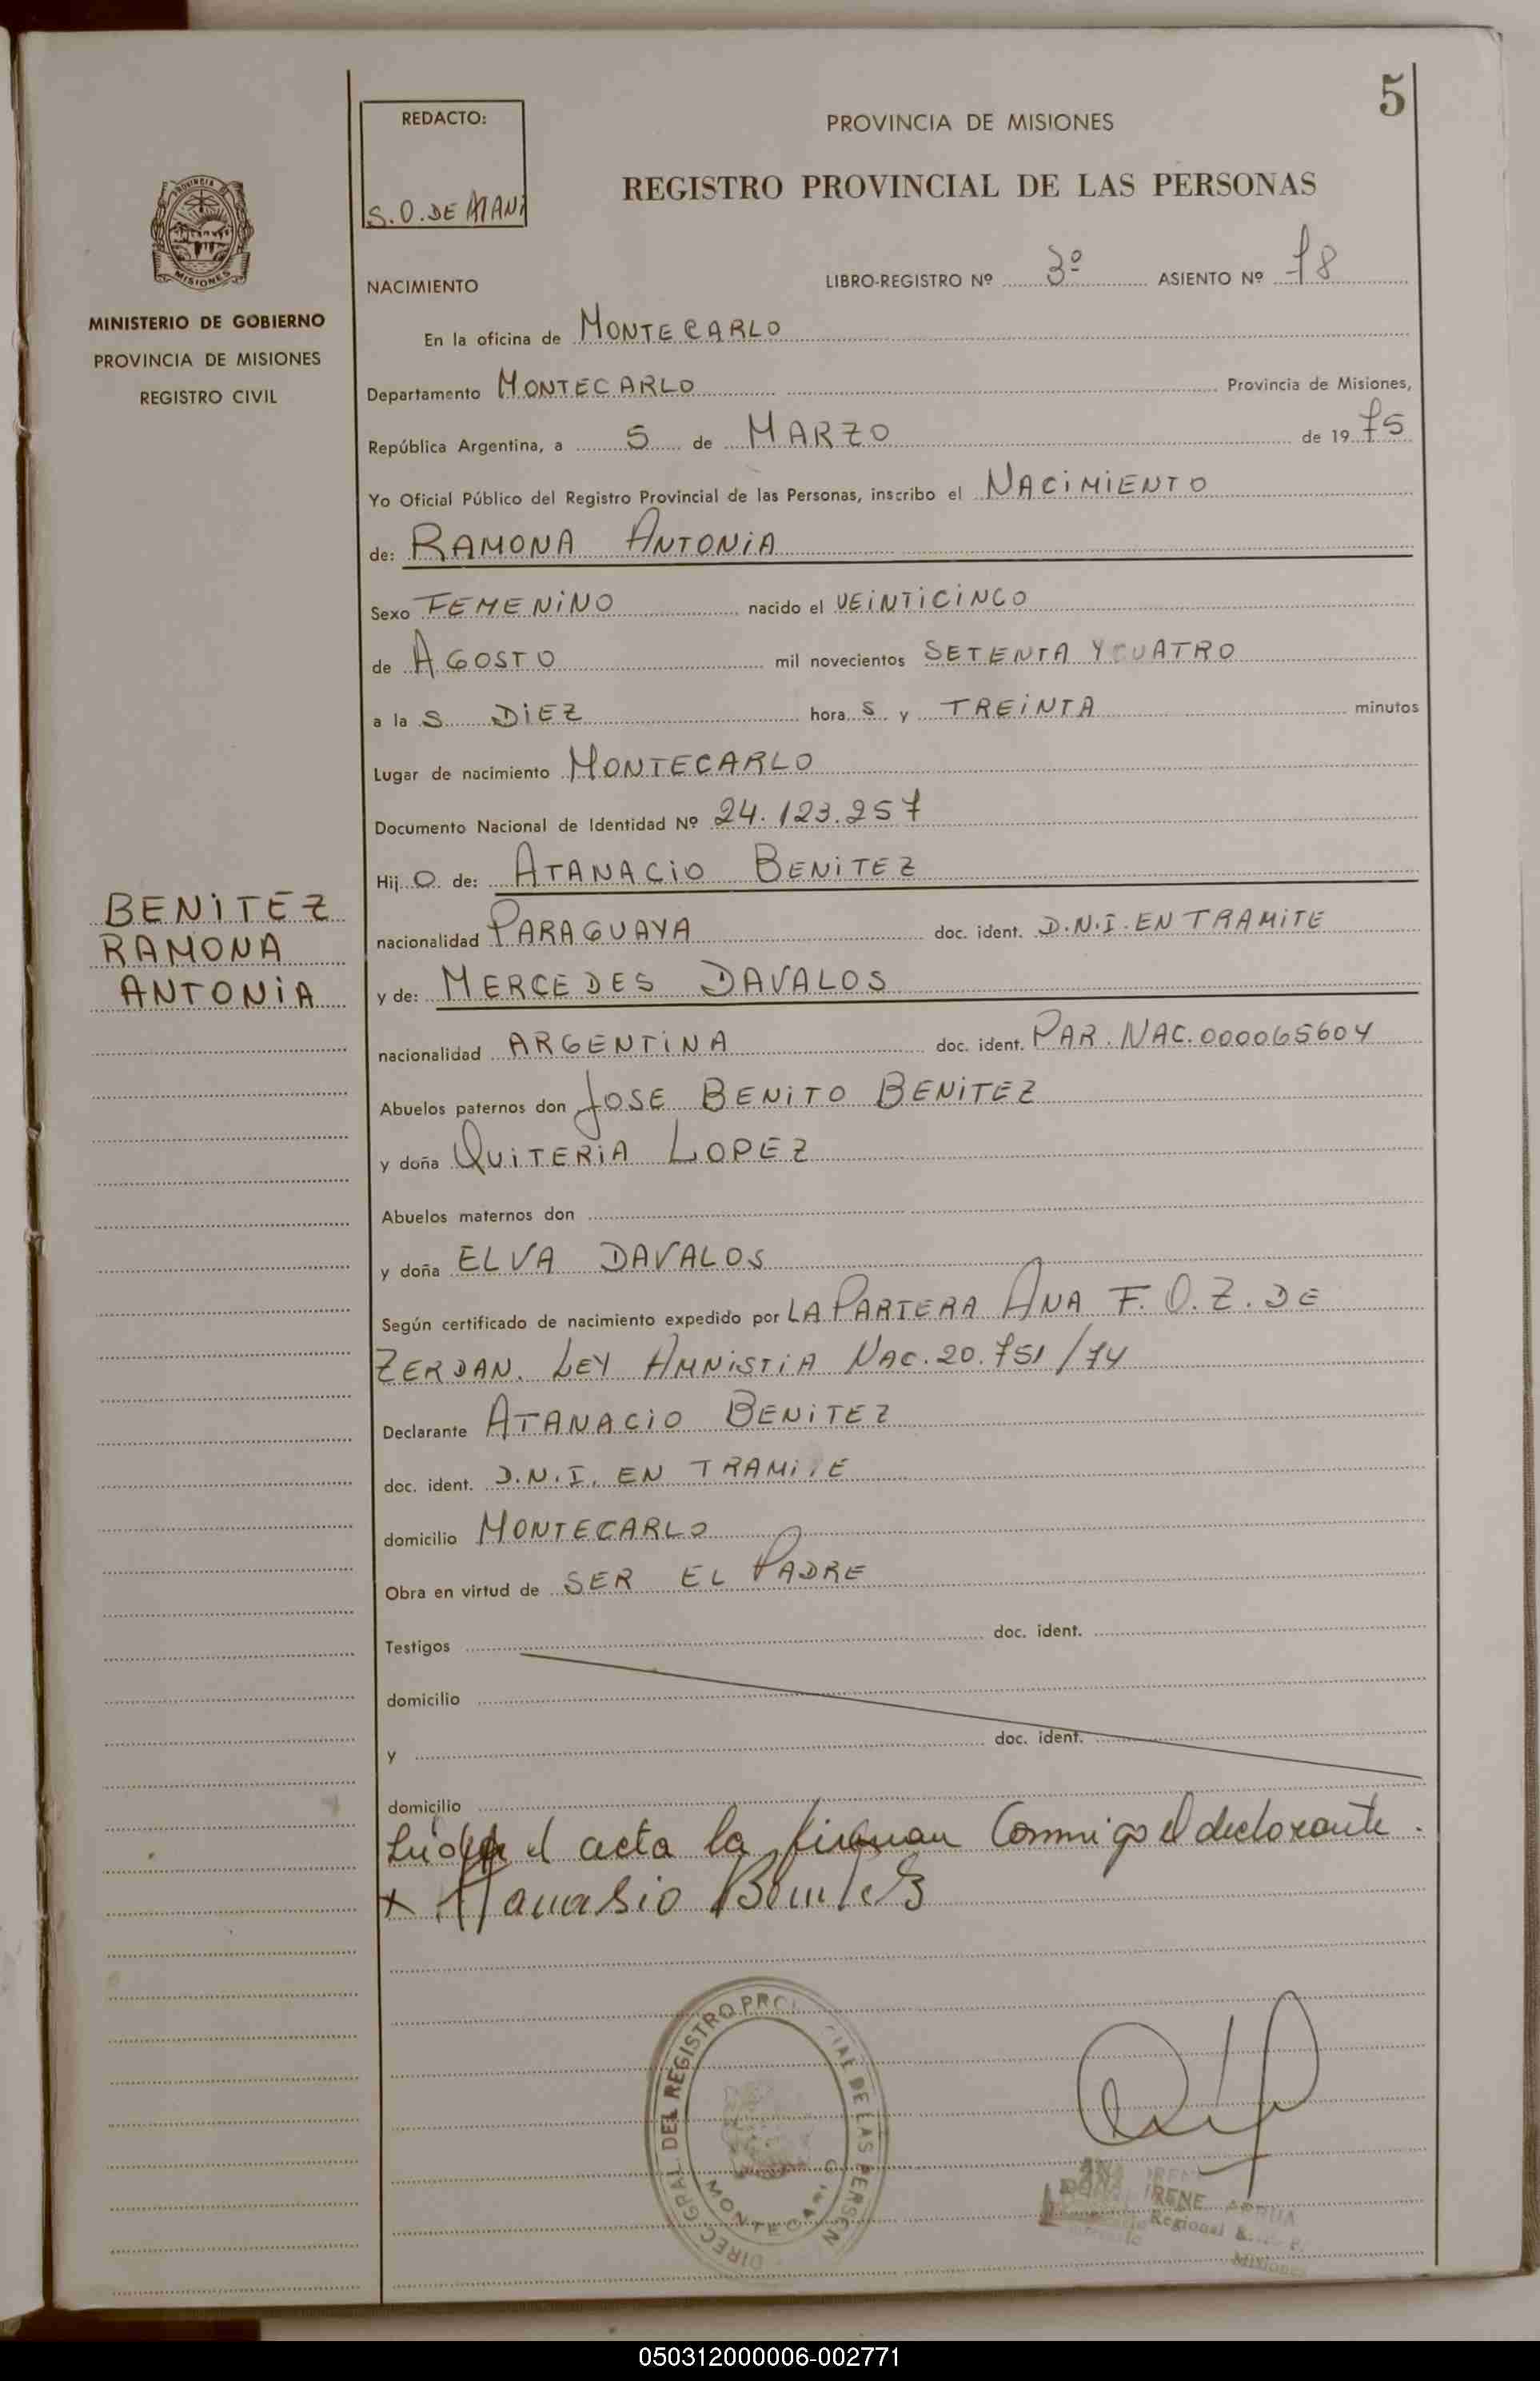 5
REDACTO:
S.O. DE
PROVINCIA DE MISIONES
REGISTRO PROVINCIAL DE LAS PERSONAS
PROVINCIA DE
MISIONES
MINISTERIO DE GOBIERNO
PROVINCIA DE MISIONES
REGISTRO CIVIL
NACIMIENTO LIBRO-REGISTRO Nº 3º ASIENTO Nº 78
En la oficina de MONTECARLO
Departamento MONTECARLO Provincia de Misiones,
República Argentina, a 5 de MARZO de 1975
Yo Oficial Público del Registro Provincial de las Personas, inscribo el NACIMIENTO
de: RAMONA ANTONIA
Sexo FEMENINO nacido el VEINTICINCO
de AGOSTO mil novecientos SETENTA Y CUATRO
a la S DIEZ hora S y TREINTA minutos
Lugar de nacimiento MONTECARLO
Documento Nacional de Identidad Nº 24.123.257
Hij O de: ATANACIO BENITEZ
BENITEZ
RAMONA
ANTONIA
nacionalidad PARAGUAYA doc. ident. D.N.I. EN TRAMITE
y de: MERCEDES DAVALOS
nacionalidad ARGENTINA doc. ident. PAR. NAC. 000065604
Abuelos paternos don JOSE BENITO BENITEZ
y doña QUITERIA LOPEZ
Abuelos maternos don
y doña ELVA DAVALOS
Según certificado de nacimiento expedido por LA PARTERA ANA F. O. Z. DE
ZERDAN. LEY AMNISTIA NAC. 20.751/74
Declarante ATANACIO BENITEZ
doc. ident. D.N.I. EN TRAMITE
domicilio MONTECARLO
Obra en virtud de SER EL PADRE
Testigos doc. ident.
domicilio
y doc. ident.
domicilio
el acta la firman Conmigo el declarante.
x Atanasio Benitez
DIREC. GRAL. DEL REGISTRO DE LAS
MONTECARLO
IRENE
Regional
Misiones
050312000006-002771